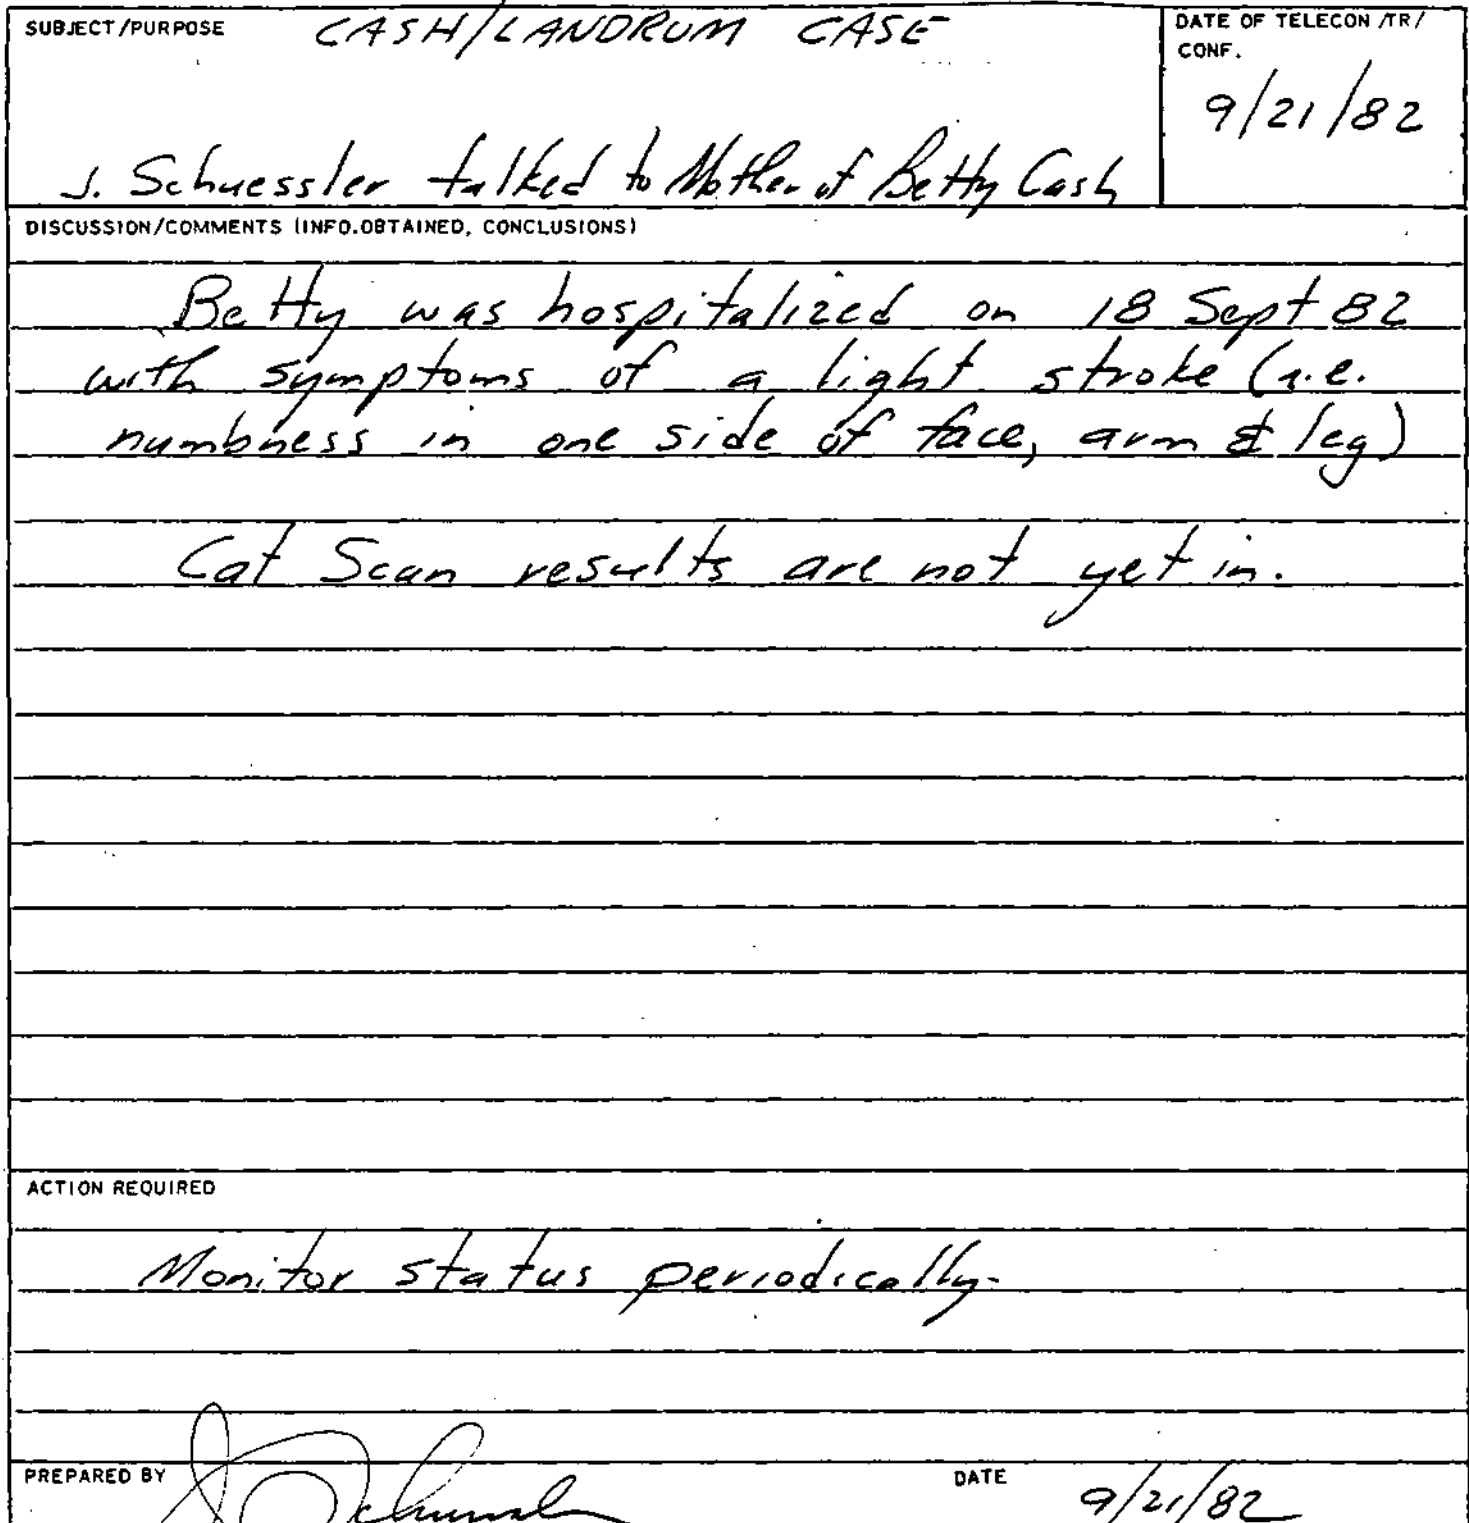 SUBJECT/PURPOSE CASH/LANDRUM CASE
DATE OF TELECON /TR/
CONF.
9/21/82
J. Schuessler talked to Mother of Betty Cash
DISCUSSION/COMMENTS (INFO.OBTAINED, CONCLUSIONS)
Betty was hospitalized on 18 Sept 82
with symptoms of a light stroke (i.e.
numbness in one side of face, arm & leg)
Cat Scan results are not yet in.
ACTION REQUIRED
Monitor status periodically.
PREPARED BY J Schuessler DATE 9/21/82